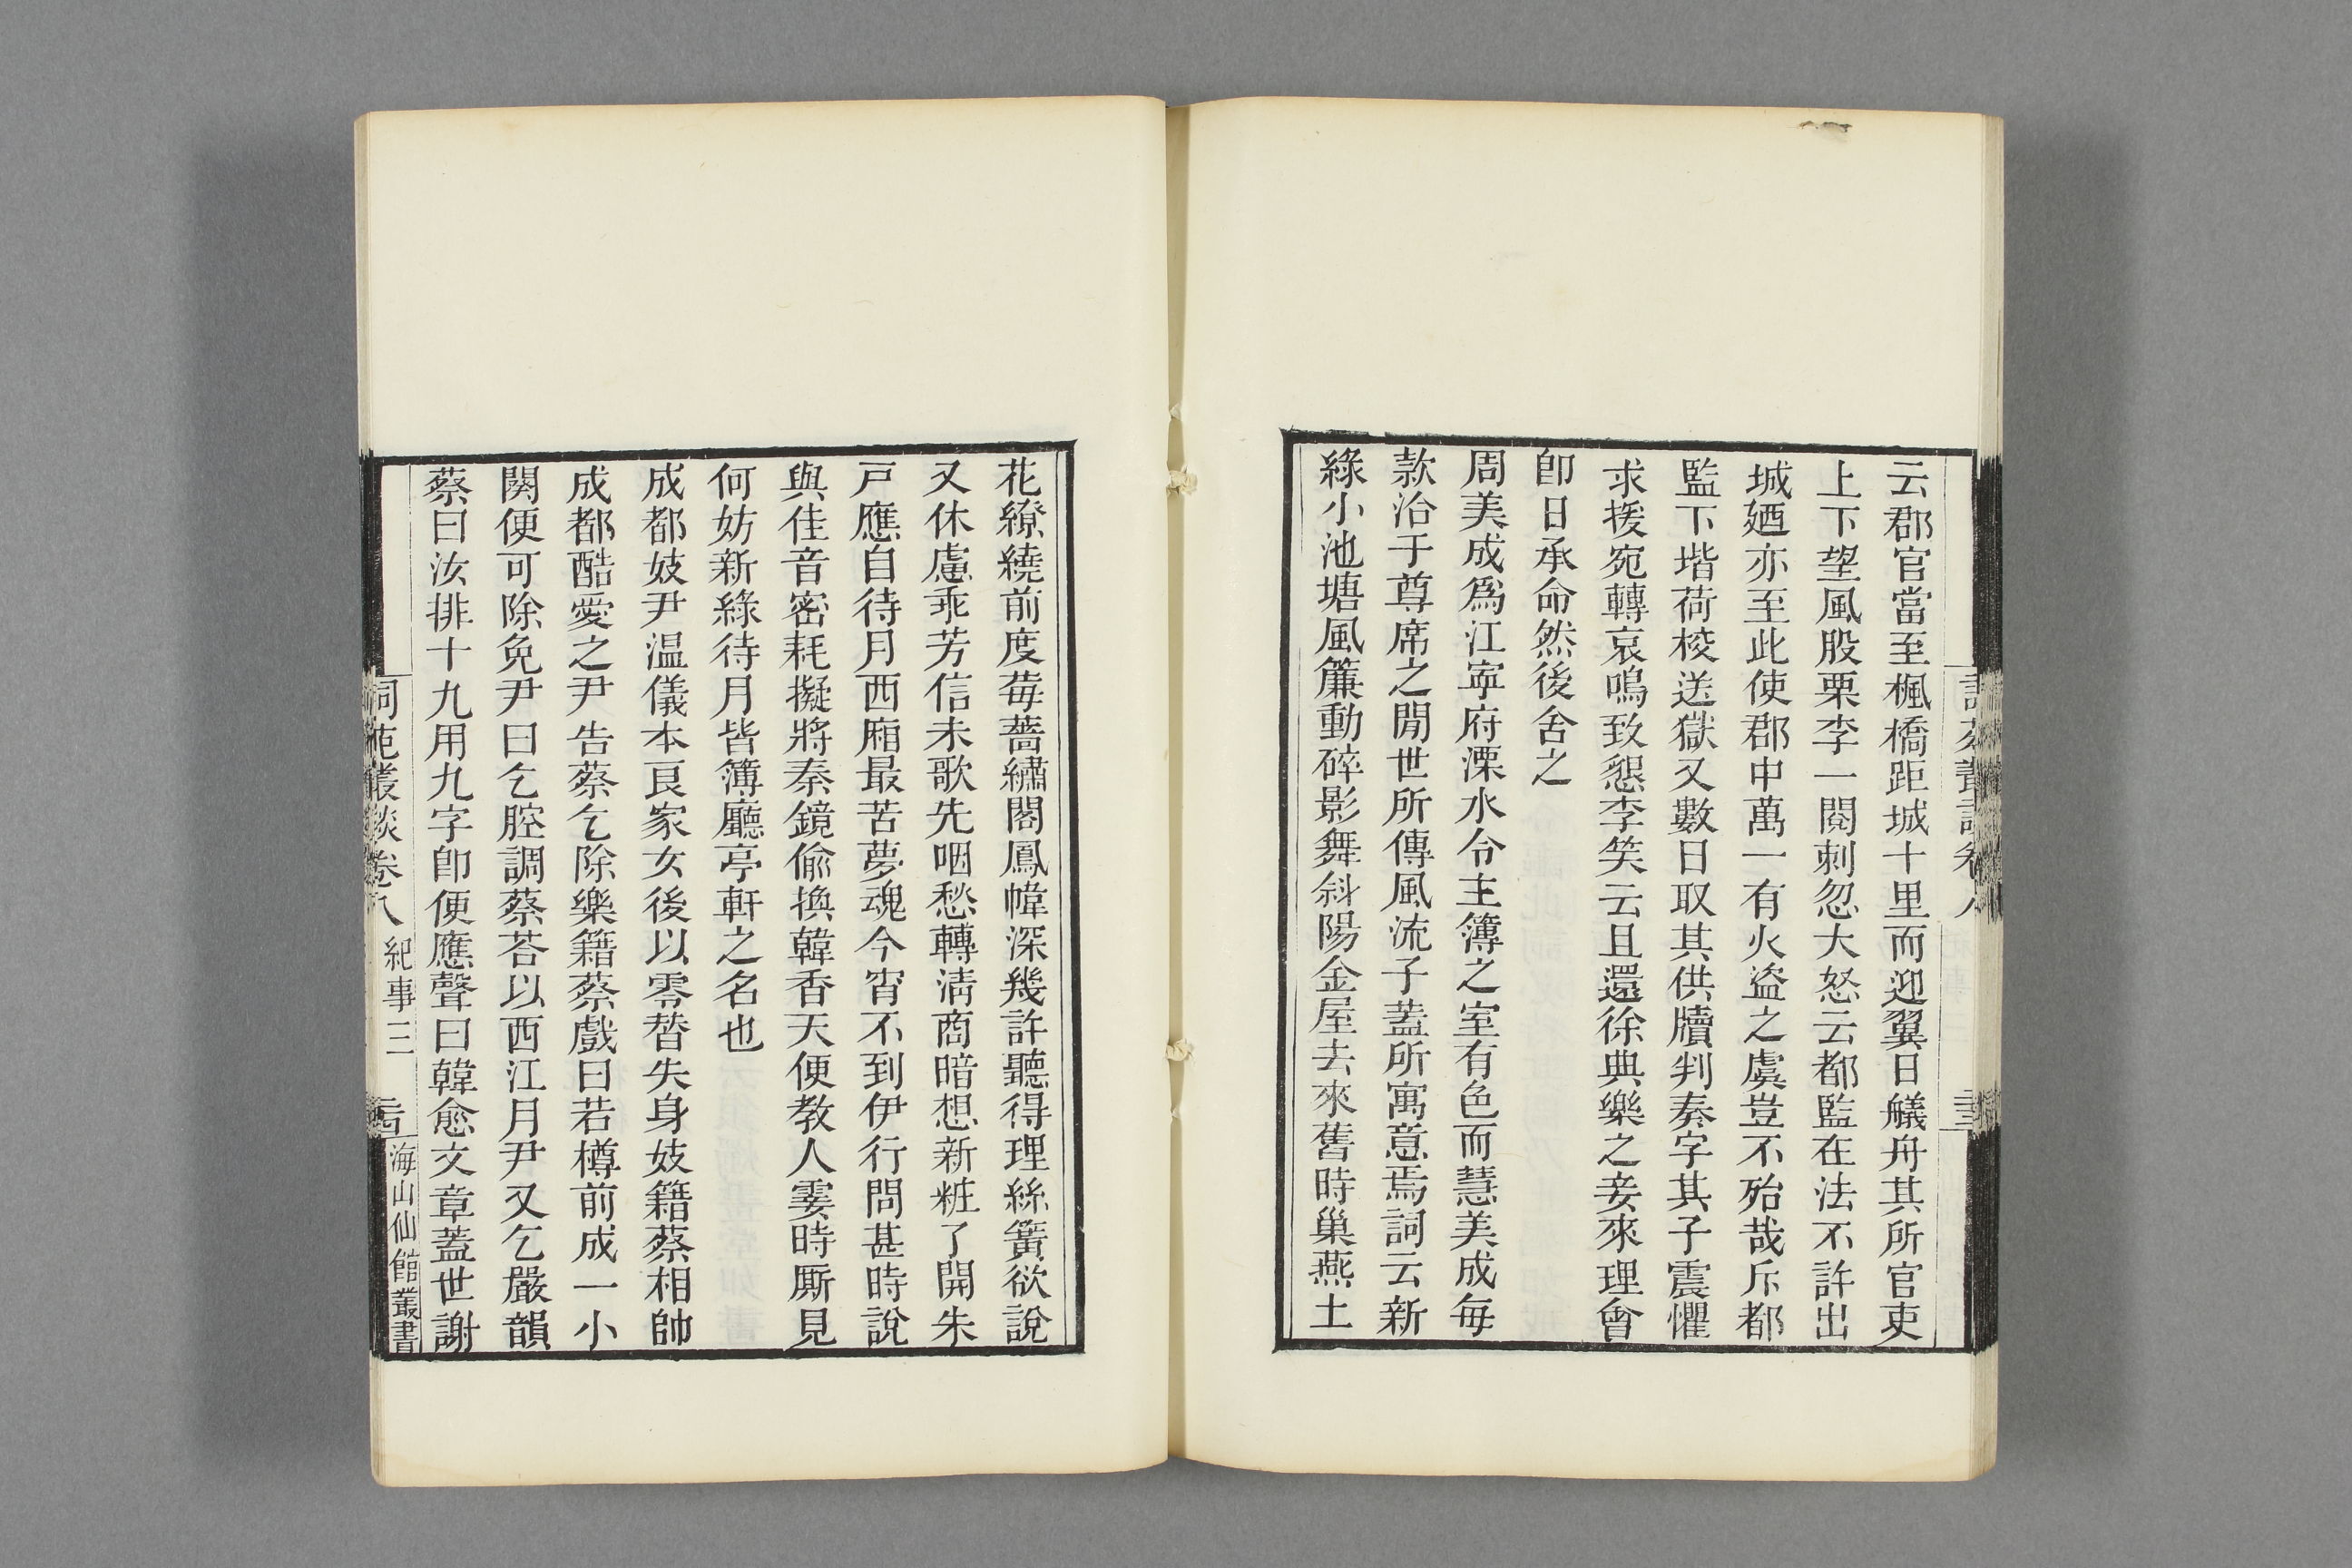 云郡官當至楓橋距城十里而迎翼日艤舟其所官吏
上下望風股栗李一閱刺忽大怒云都監在法不許出
城廼亦至此使郡中萬一有火盜之虞豈不殆哉斥都
監下堦荷校送獄又數日取其供牘判奏字其子震懼
求援宛轉哀鳴致懇李笑云且還徐典樂之妾來理會
卽日承命然後舍之
周美成爲江寧府溧水令主簿之室有色而慧美成每
款洽于尊席之閒世所傳風流子蓋所寓意焉詞云新
綠小池塘風簾動碎影舞斜陽金屋去來舊時巢燕土
花繚繞前度莓薔繡閣鳳幃深幾許聽得理絲簧欲說
又休慮乖芳信未歌先咽愁轉淸商暗想新粧了開朱
戸應自待月西廂最苦夢魂今宵不到伊行問甚時說
與佳音密耗擬將秦鏡偷換韓香天便教人霎時厮見
何妨新綠待月皆簿廳亭軒之名也
成都妓尹温儀本良家女後以零替失身妓籍蔡相帥
成都酷愛之尹告蔡乞除樂籍蔡戲曰若樽前成一小
闋便可除免尹曰乞腔調蔡荅以西江月尹又乞嚴韻
蔡曰汝排十九用九字卽便應聲曰韓愈文章蓋世謝
詞苑叢談卷八 紀事三
海山仙館叢書